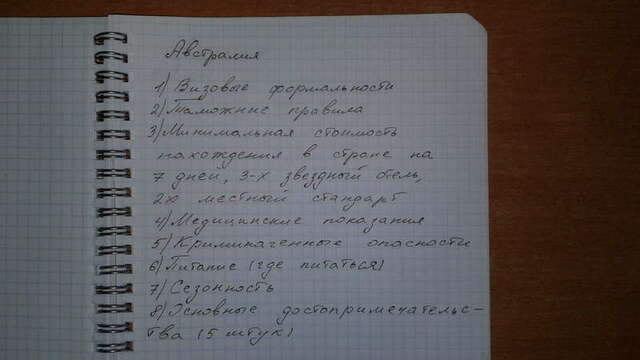 Австралия
1) Визовые формальности
2) Таможные правила
3) Минимальная стоимость
нахождения в стране на
7 дней, 3-х звездный отель,
2х местный стандарт
4) Медицинские показания
5) Криминагенные опасности
6) Питание (где питаться)
7) Сезонность
8) Основные достопримечательс-
тва (5 штук)